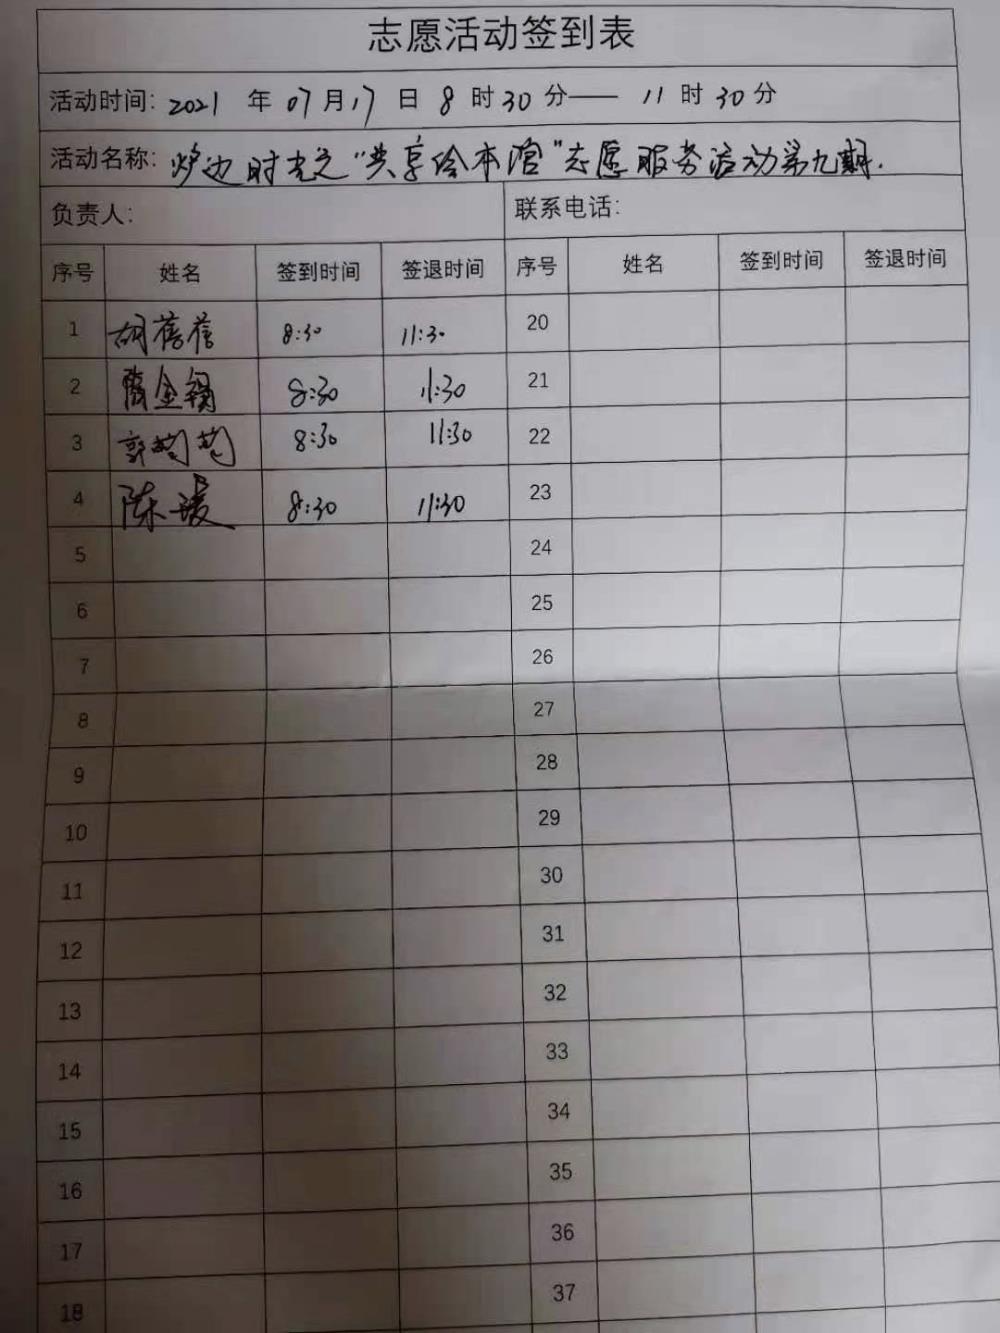 志愿活动签到表
活动时间：2021 年 07 月 17 日 8 时 30 分—— 11 时 30 分
活动名称：炉边时光之“共享绘本馆”志愿服务活动第九期.
负责人： 联系电话：
序号 姓名 签到时间 签退时间 序号 姓名 签到时间 签退时间
1 胡蓓蓓 8:30 11:30 20
2 金 8:30 11:30 21
3 郭 8:30 11:30 22
4 陈瑗 8:30 11:30 23
5 24
6 25
7 26
8 27
9 28
10 29
11 30
12 31
13 32
14 33
15 34
16 35
17 36
18 37